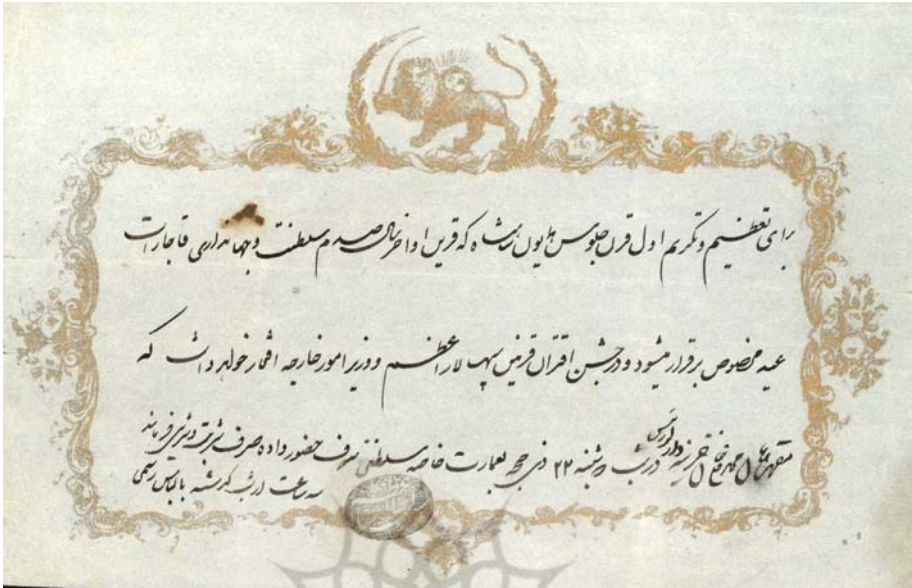 برای تعظیم و تکریم اول قرن جلوس همایون شاهنشاه که قرین اواخر سال صدم سلطنت و جهانداری قاجار است
عید مخصوص برقرار میشود و در جشن اقتران قرنین سپهسالار اعظم و وزیر امور خارجه افتخار خواهد داشت که
خان در شب شنبه ۲۲ ذی حجه بعمارت خاصه سلطنتی شرف حضور داده صرف شربت و شیرینی فرمایند
سه ساعت از شب گذشته با لباس رسمی